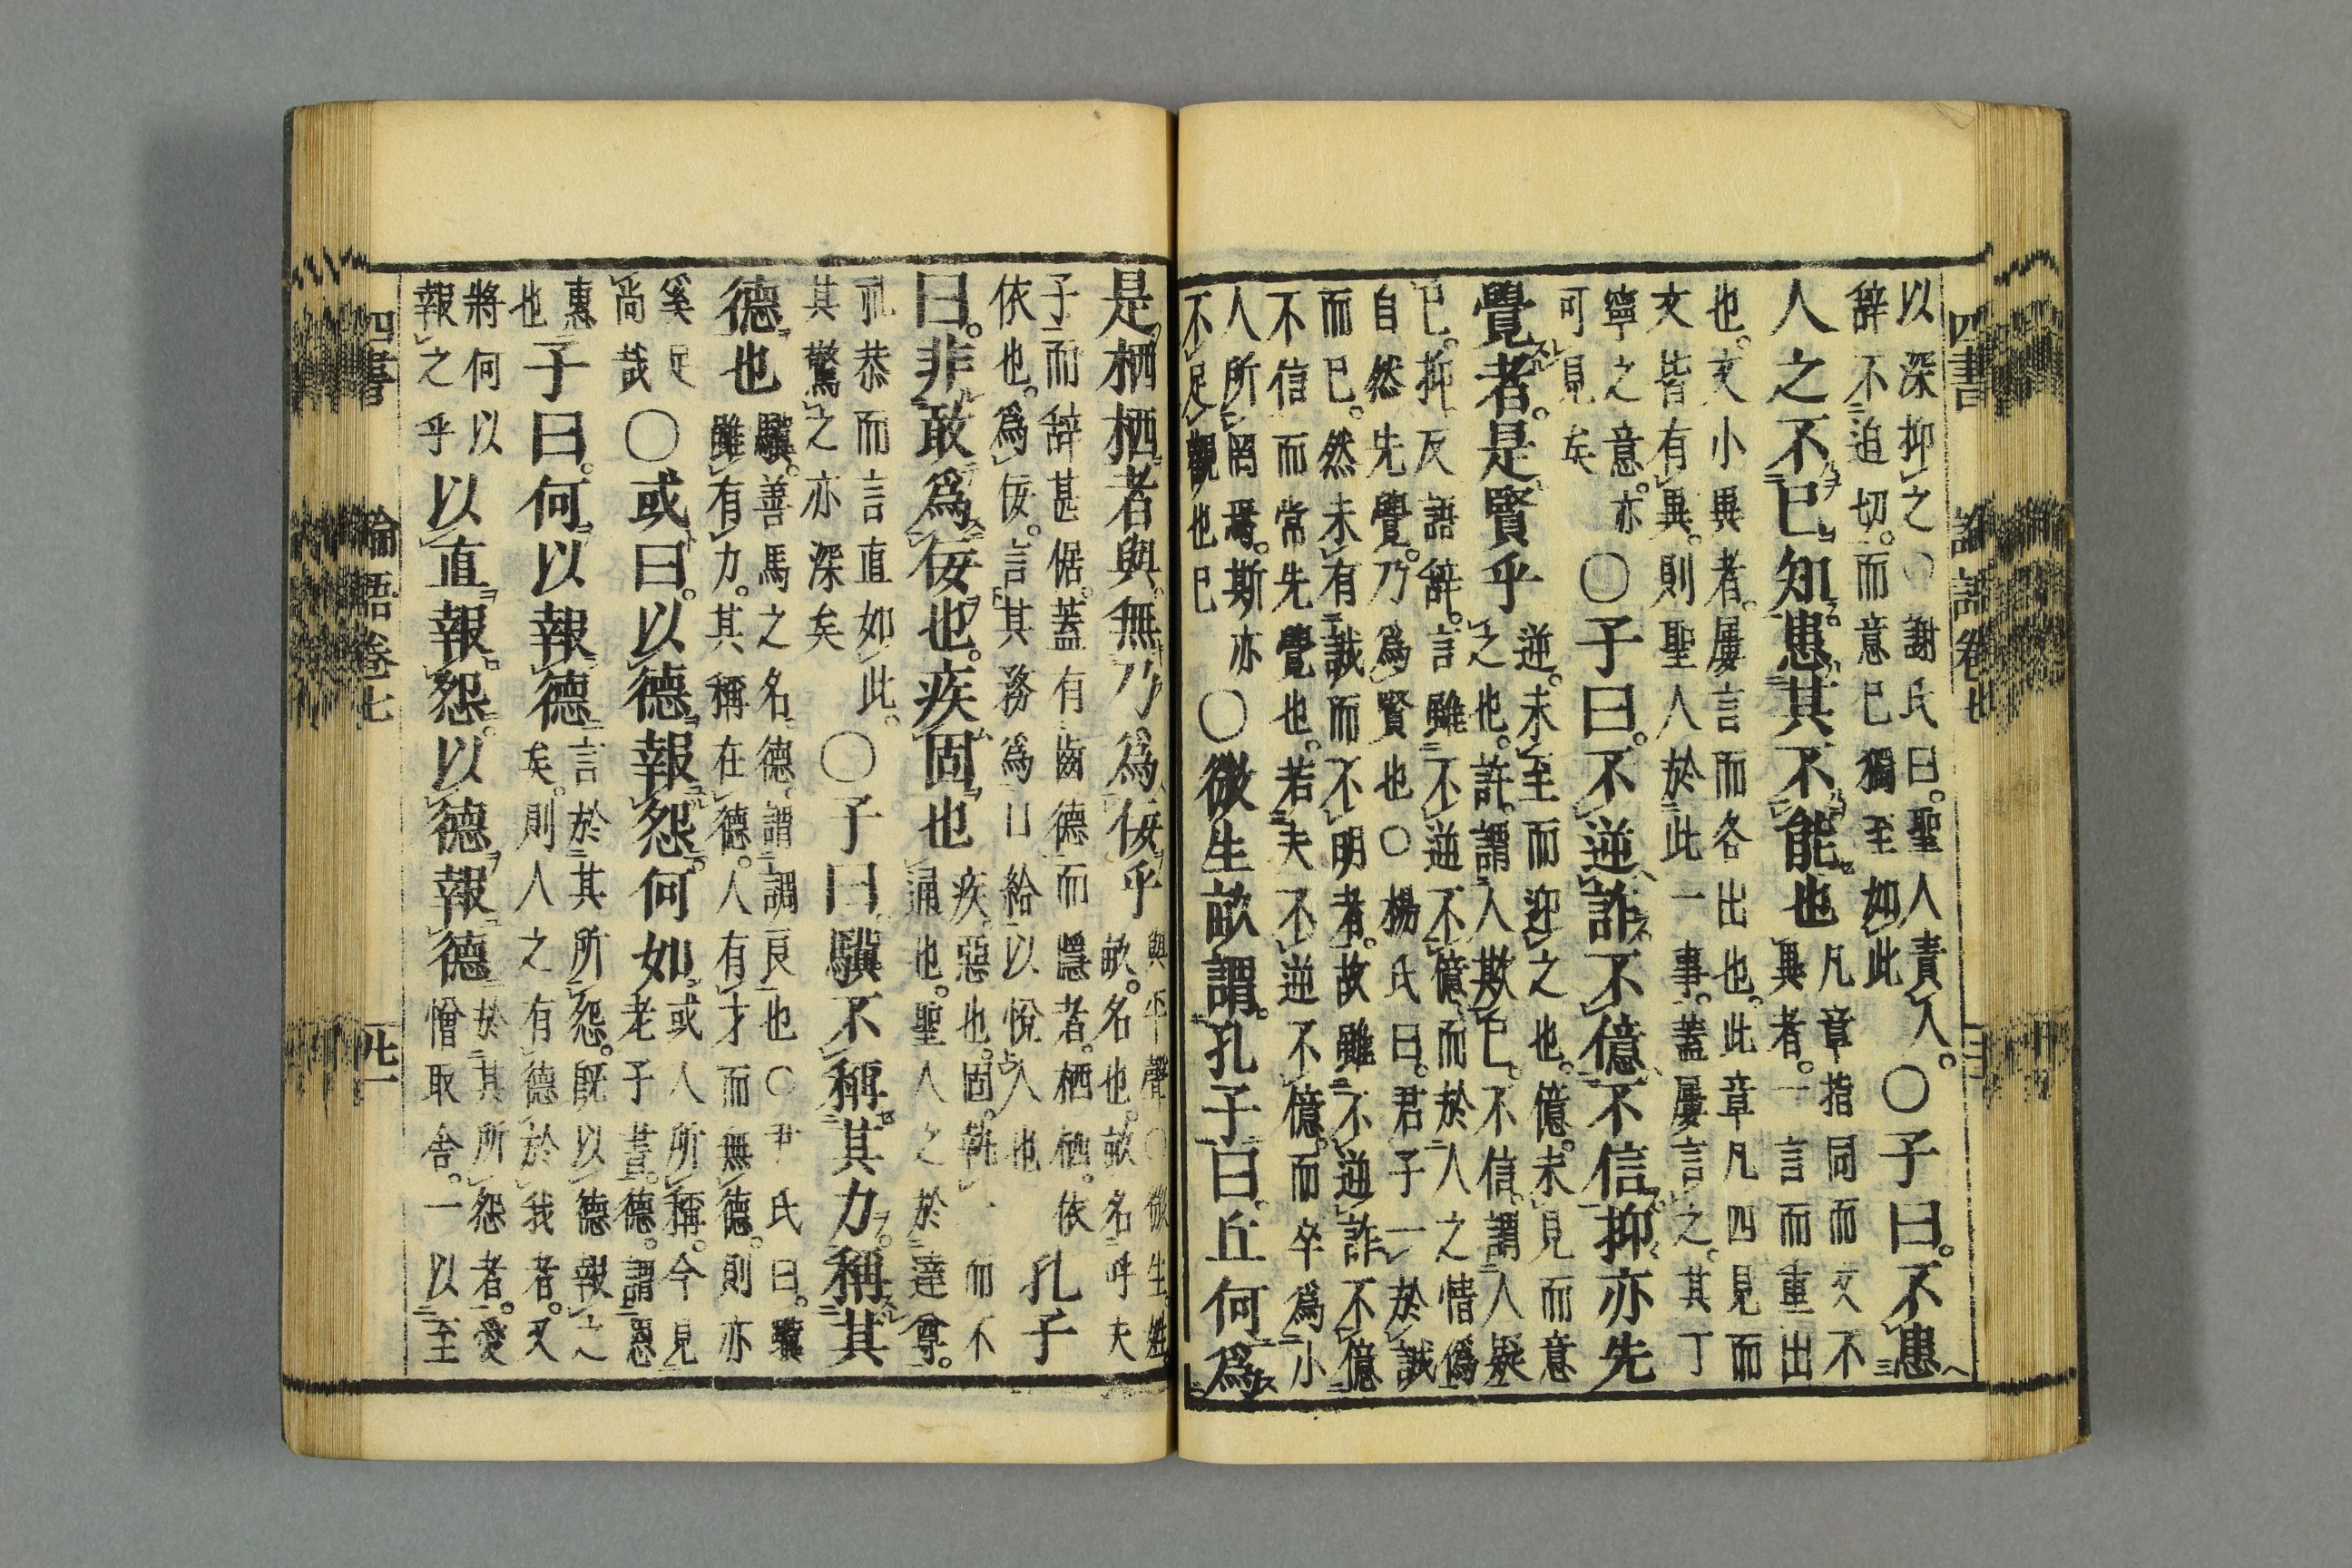 四書 論語卷七
以深抑之○謝氏曰。聖人責人。
辭不迫切。而意已獨至如此
○子曰。不患
人之不已知。患其不能也
凡章指同而文不
異者。一言而重出
也。文小異者。屢言而各出也。此章凡四見而
文皆有異。則聖人於此一事。蓋屢言之。其丁
寧之意。亦
可見矣
○子曰。不逆詐。不億不信。抑亦先
覺者。是賢乎
逆。未至而迎之也。億。未見而意
之也。詐。謂人欺已。不信。謂人疑
已。抑反語辭。言雖不逆不億。而於人之情僞
自然先覺。乃爲賢也○楊氏曰。君子一於誠
而已。然未有誠而不明者。故雖不逆詐不億
不信而常先覺也。若夫不逆不億。而卒爲小
人所罔焉。斯亦
不足觀也已
○微生畝謂孔子曰。丘何爲
是栖栖者與。無乃爲佞乎
與平聲○微生姓
畝。名也。畝名呼夫
子而辭甚倨。蓋有齒德而隱者。栖栖。依
依也。爲佞。言其務爲口給以悅人也
孔子
曰。非敢爲佞也。疾固也
疾。惡也。固。執一而不
通也。聖人之於達尊。
禮恭而言直如此。
其驚之亦深矣
○子曰。驥不稱其力。稱其
德也
驥。善馬之名。德。謂調良也○尹氏曰。驥
雖有力。其稱在德。人有才而無德。則亦
奚足
尚哉
○或曰。以德報怨。何如
或人所稱。今見
老子書。德。謂恩
惠
也
子曰。何以報德
言於其所怨。既以德報之
矣。則人之有德於我者。又
將何以
報之乎
以直報怨。以德報德
於其所怨者。愛
憎取舍。一以至
四書 論語卷七